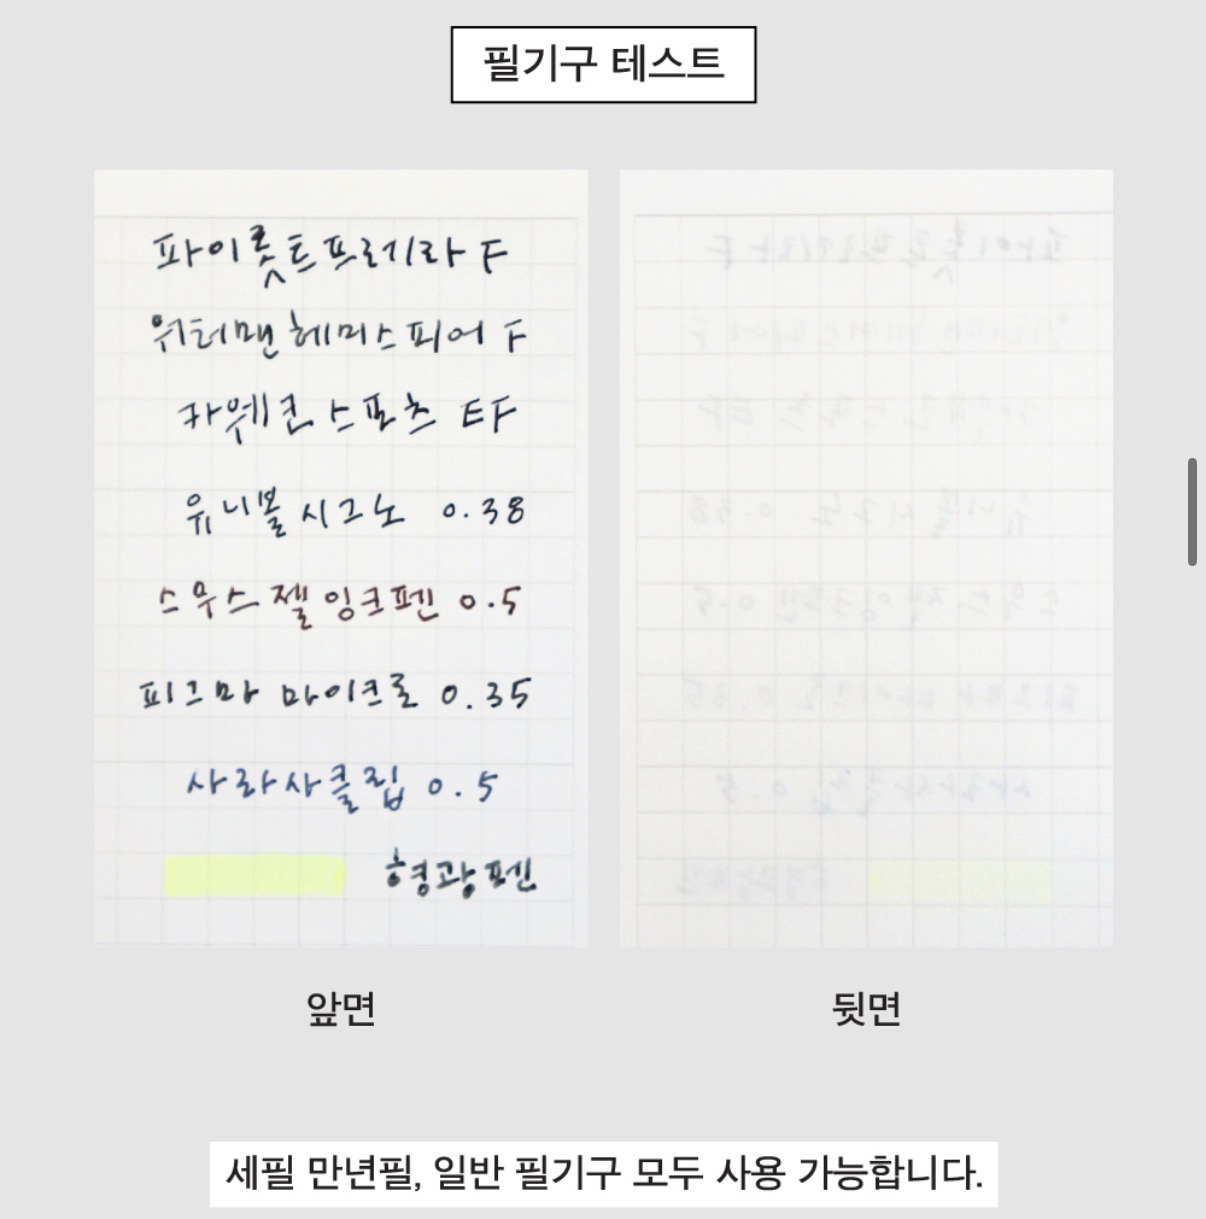 필기구 테스트
파이롯트프레라 F
워터맨 헤미스피어 F
카웨코 스포츠 EF
유니볼 시그노 0.38
스무스젤잉크펜 0.5
피그마 마이크로 0.35
사라사클립 0.5
형광펜
앞면
뒷면
세필 만년필, 일반 필기구 모두 사용 가능합니다.